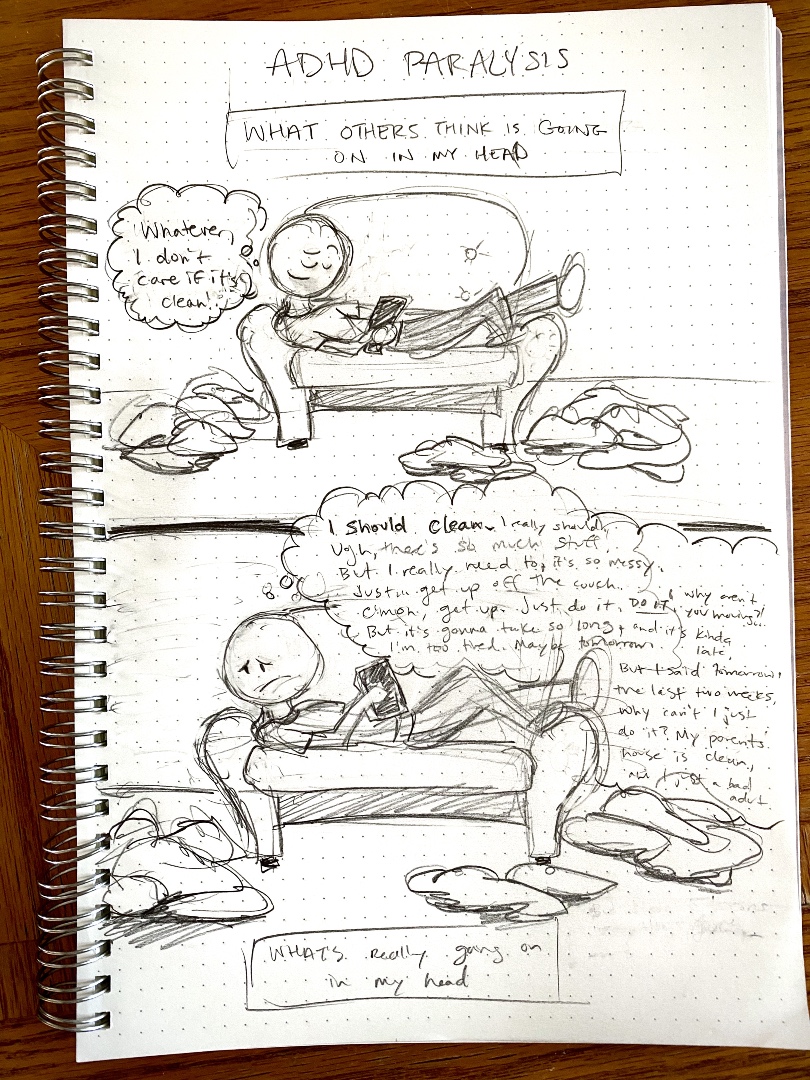 ADHD PARALYSIS
WHAT OTHERS THINK IS GOING
ON IN MY HEAD
Whatever,
I don't
care if it's
clean!
I should clean. I really should.
Ugh, there's so much stuff.
But I really need to, it's so messy.
Just... get up off the couch.
C'mon, get up. Just do it. DO IT.
But it's gonna take so long, and it's kinda
late,
I'm too tired. Maybe tomorrow.
why aren't
you moving?!
But I said tomorrow
the last two weeks,
why can't I just
do it? My parents
house is clean,
am I just a bad
adult.
WHAT'S really going on
in my head